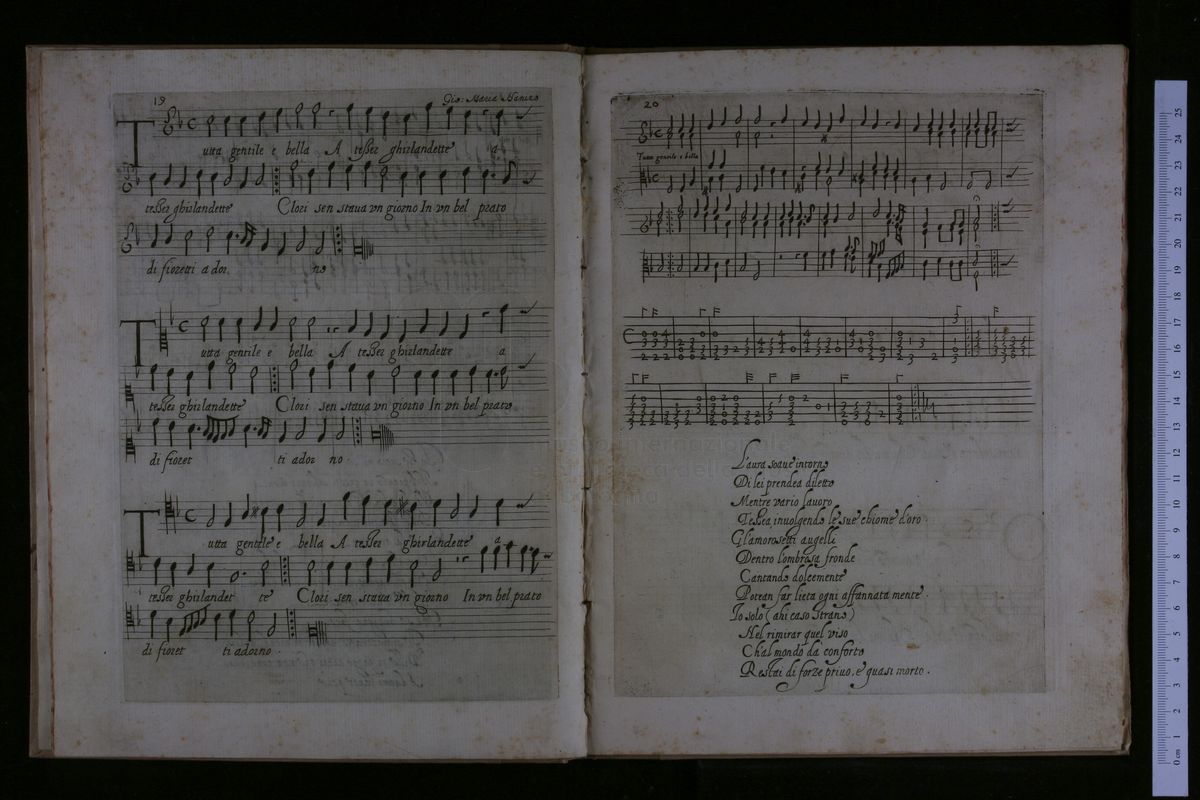 19
Gio: Maria Nanino
Tutta gentile e bella A tesser ghirlandette a
tesser ghirlandette Clori sen staua vn giorno In vn bel prato
di fioretti ador no
Tutta gentile e bella A tesser ghirlandette a
tesser ghirlandette Clori sen staua vn giorno In vn bel prato
di fioret ti ador no.
Tutta gentile e bella A tesser ghirlandette a
tesser ghirlandet te Clori sen staua vn giorno In vn bel prato
di fioret ti adorno.
20
Tutta gentile e bella
L'aura soaue intorno
Di lei prendea diletto
Mentre vario lauoro
Tessea inuolgendo le sue chiome d'oro.
Gl'amorosetti augelli
Dentro l'ombrosa fronde
Cantando dolcemente
Potean far lieta ogni affannata mente.
Io solo (ahi caso strano)
Nel rimirar quel viso
Ch'al mondo da conforto
Restai di forze priuo, e quasi morto.